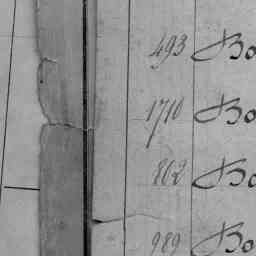 493 Bo
1710 Bo
802 Bo
989 Bo